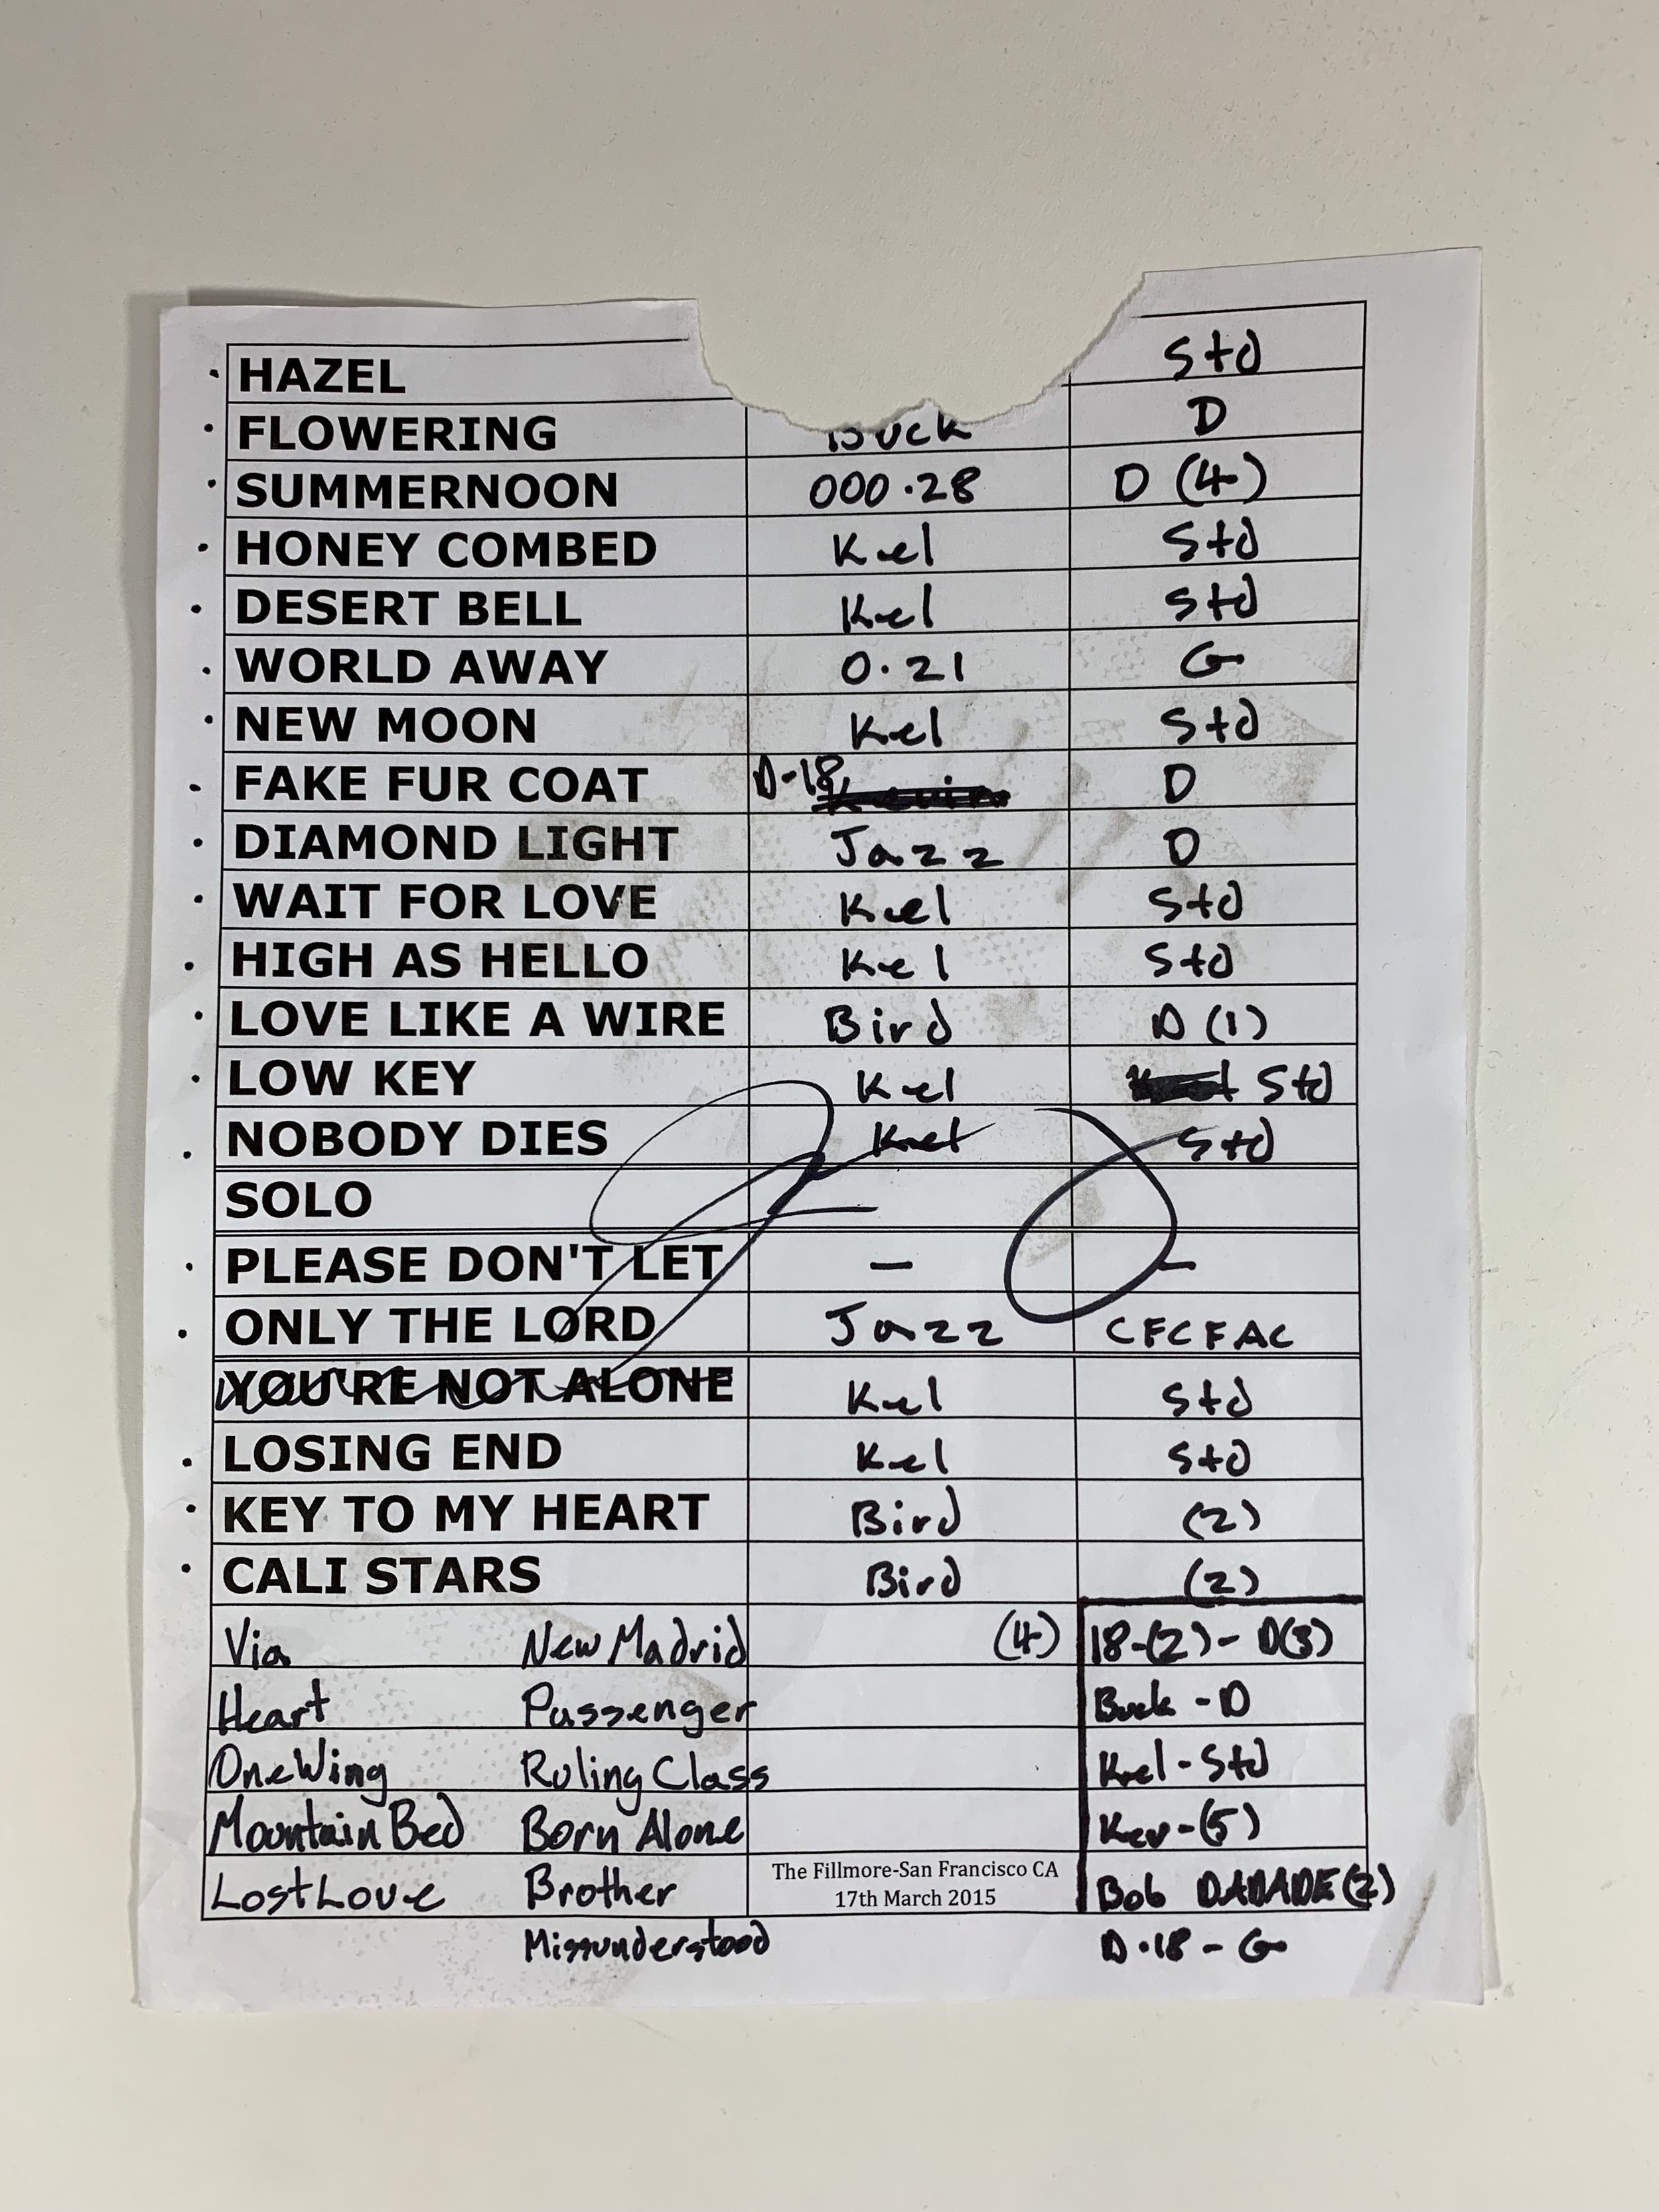 · HAZEL Std
· FLOWERING Buck D
· SUMMERNOON 000·28 D (4)
· HONEY COMBED Kel Std
· DESERT BELL Kel Std
· WORLD AWAY 0·21 G
· NEW MOON Kel Std
· FAKE FUR COAT D-18 Kevin D
· DIAMOND LIGHT Jazz D
· WAIT FOR LOVE Kel Std
· HIGH AS HELLO Kel Std
· LOVE LIKE A WIRE Bird D (1)
· LOW KEY Kel Std
· NOBODY DIES Kel Std
SOLO —
· PLEASE DON'T LET — —
· ONLY THE LORD Jazz CFCFAC
YOU'RE NOT ALONE Kel Std
· LOSING END Kel Std
· KEY TO MY HEART Bird (2)
· CALI STARS Bird (2)
Via New Madrid (4) 18-(2)-D(3)
Heart Passenger Buck - D
One Wing Ruling Class Kel - Std
Mountain Bed Born Alone Kev - (5)
Lost Love Brother The Fillmore-San Francisco CA Bob DADADE (2)
17th March 2015
Missunderstood D·18 - G